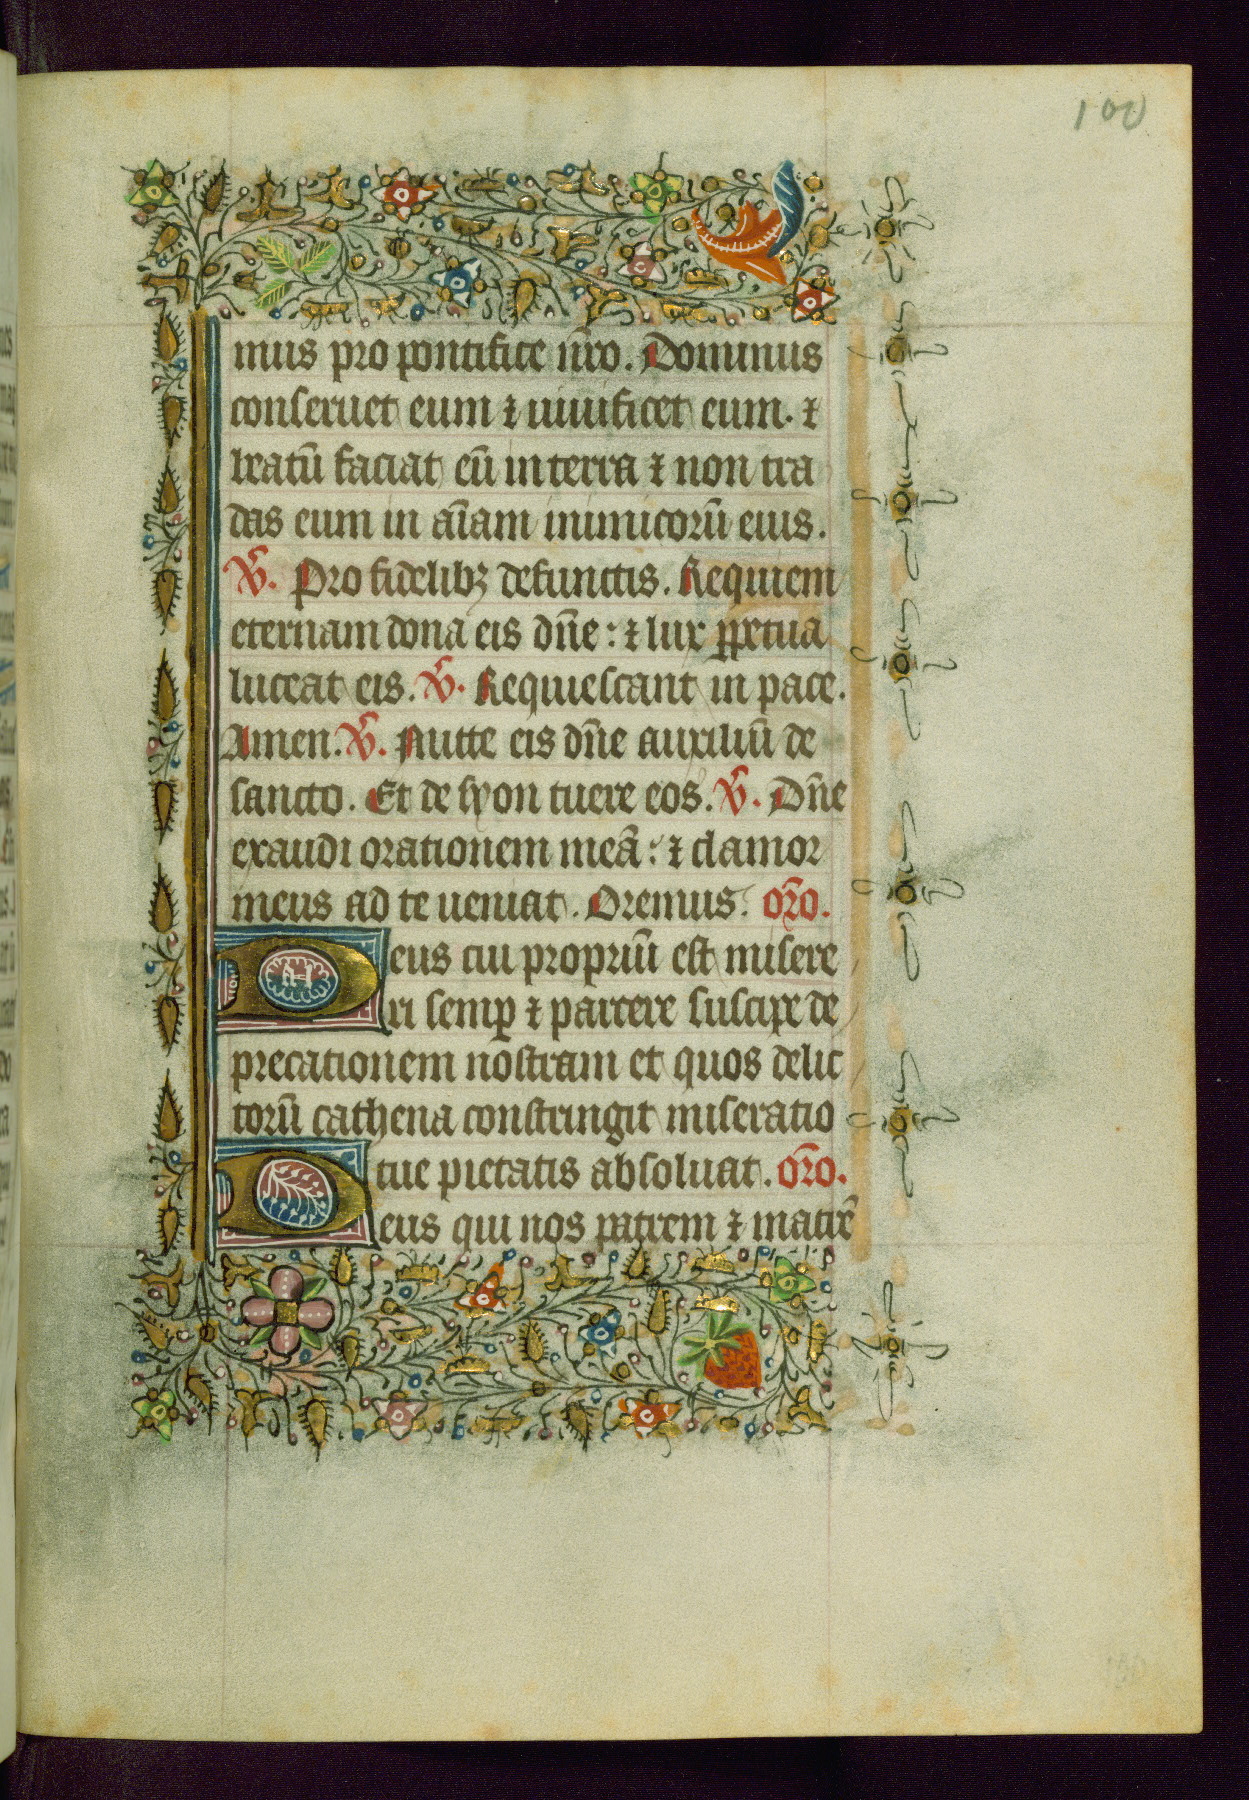 100
mus pro pontifice nr̄o. Dominus
conseruet eum ⁊ uiuificet eum. ⁊
beatū faciat eū in terra ⁊ non tra
das eum in aīam inimicorū eius.
V̄. Pro fidelibꝫ defunctis. Requiem
eternam dona eis dn̄e : ⁊ lux ꝑpetua
luceat eis. V̄. Requiescant in pace.
Amen. V̄. Mitte eis dn̄e auxiliū de
sancto. Et de syon tuere eos. V̄. Dn̄e
exaudi orationem meā : ⁊ clamor
meus ad te ueniat. Oremus. or̄o.
Deus cui propriū est misere
ri semꝑ ⁊ parcere suscipe de
precationem nostram et quos delic
torū cathena constringit miseratio
tue pietatis absoluat. or̄o.
Deus qui nos patrem ⁊ matrē